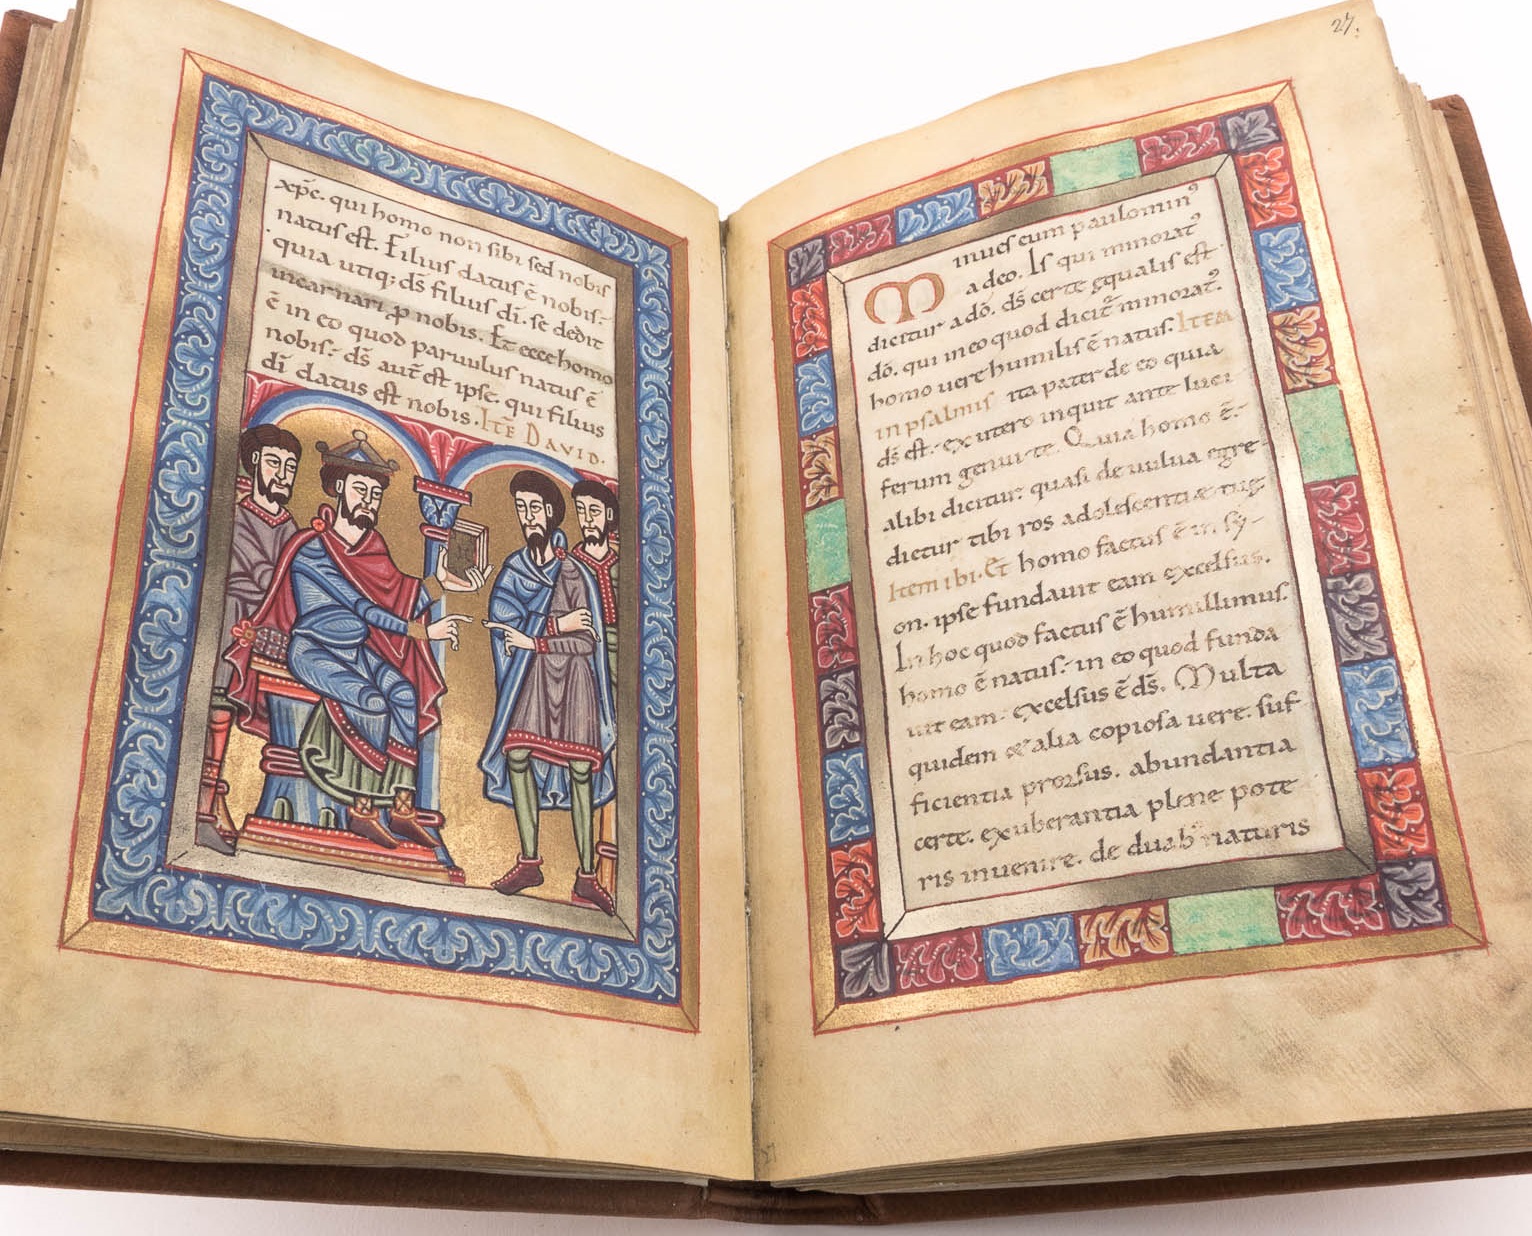 xp̄c. qui homo non sibi sed nobis
natus est. Filius datus ē nobis.
quia utiq; d̄s filius d̄i. se dedit
incarnari ꝓ nobis. Et ecce homo
ē in eo quod paruulus natus ē
nobis. d̄s aut̄ est ipse. qui filius
d̄i datus est nobis. ITĒ DAVID.
27.
Minues eum paulominꝰ
a deo. Is qui minoratꝰ
dicitur a dō. d̄s certe ęqualis est
dō. qui in eo quod dicit̄ minoratꝰ.
homo uere humilis ē natus. ITEM
in psalmis ita pater de eo quia
d̄s est. ex utero inquit ante luci
ferum genui te. Quia homo ē.
alibi dicitur. quasi de uulua egre
dietur tibi ros adolescentiæ tuę.
Item ibi. Et homo factus ē in sy
on. ipse fundauit eam excelsus.
In hoc quod factus ē humillimus.
homo ē natus. in eo quod funda
uit eam. excelsus ē d̄s. Multa
quidem & alia copiosa uere. suf
ficientia prorsus. abundantia
certe. exuberantia plene pote
ris inuenire. de duabꝰ naturis